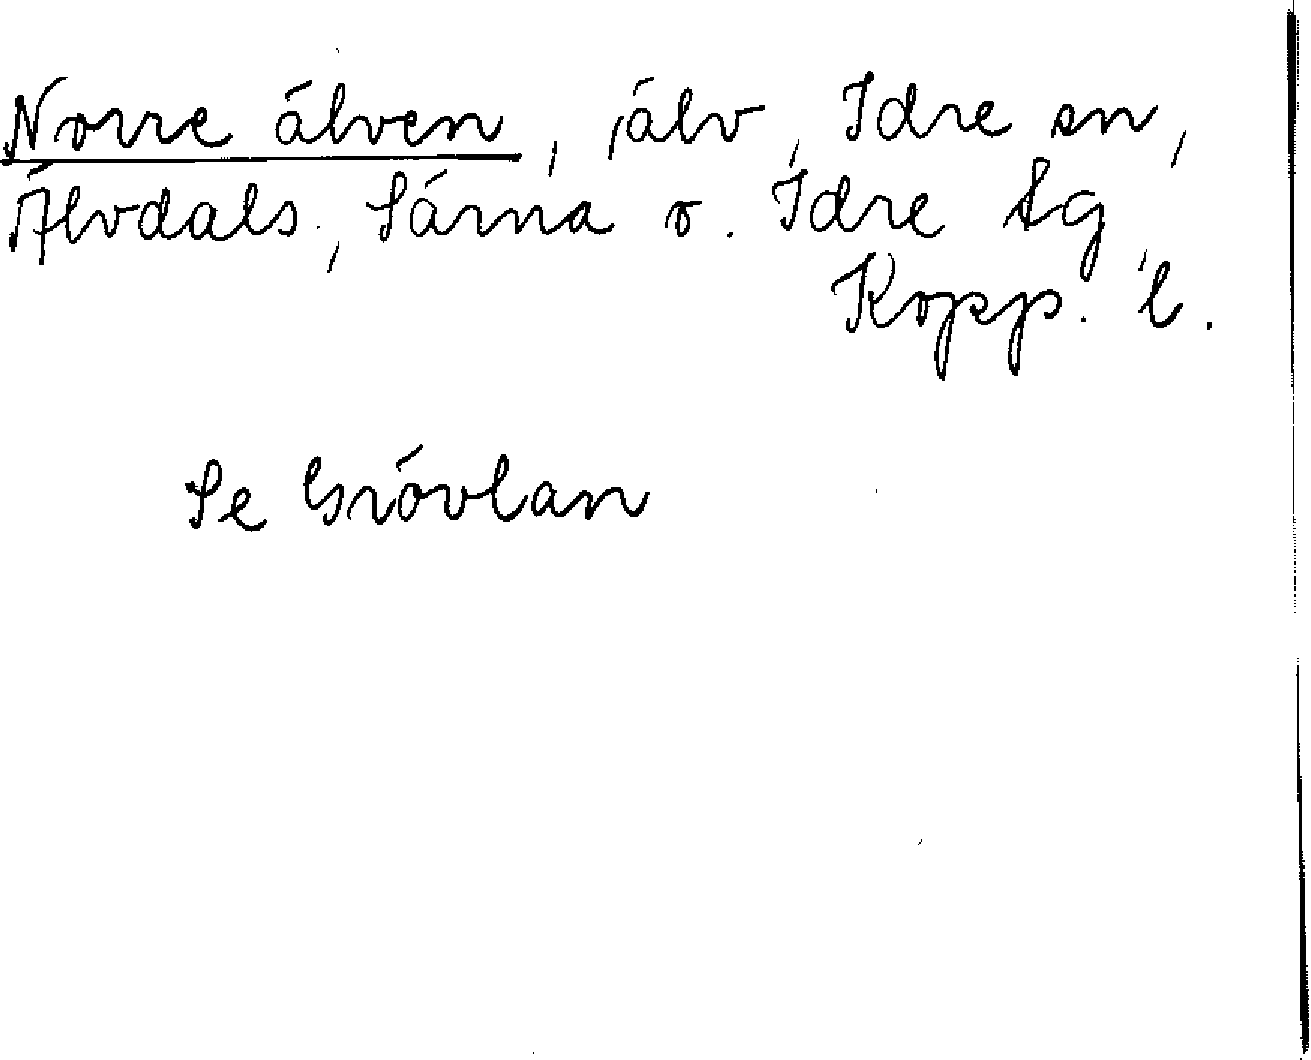 Norre älven, älv, Idre sn,
Älvdals, Särna o. Idre tg
Kopp. l.
Se Grövlan